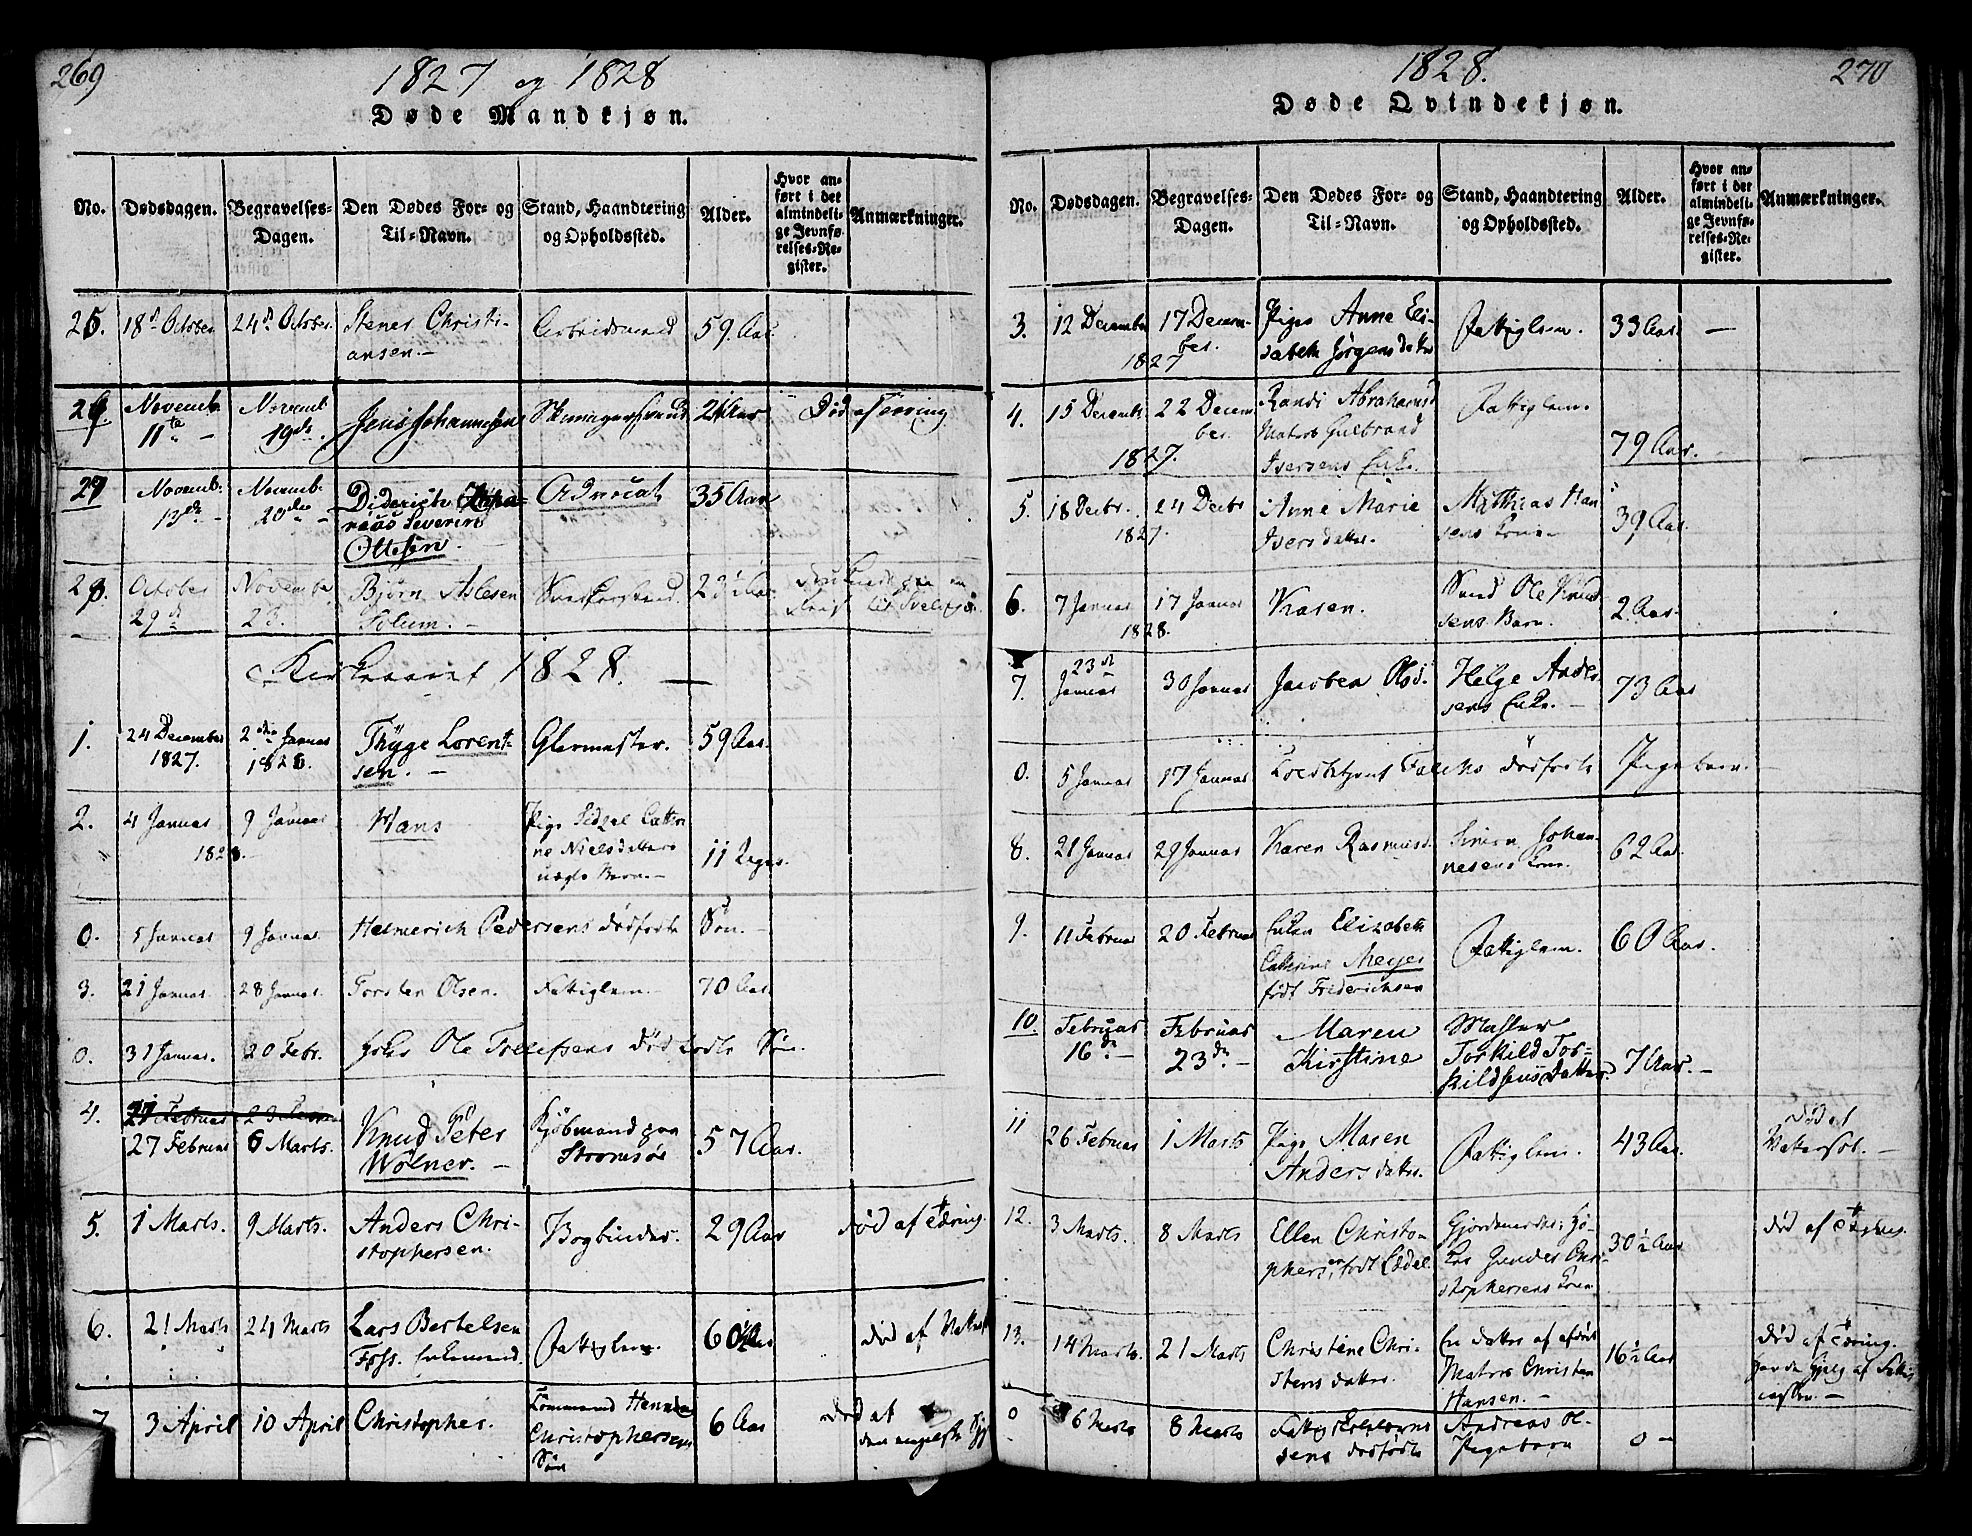 269
1827 og 1828
Døde Mandkjøn.
No. Dødsdagen. Begravelses-Dagen. Den Dødes For- og Til-Navn. Stand, Haandtering og Opholdssted. Alder. Hvor anført i det almindelige Jevnførelses-Register. Anmærkninger.
25. 18d October 24d October Stener Christi-
ansen. Arbeidsmand 59 Aar
26 Novemb. 11te Novemb. 19de Jens Johannesen 21 Aar Død af Tæring
27 Novemb. Novemb. 20de Diderich
Severin
Ottesen Advocat 35 Aar
28. October 29d November 23. Bjørn Aslesen
Solum. 23½ Aar
Kirkeaaret 1828.
1. 24 December 1827. 2den Januar 1828. Thyge Lorent-
sen. Glarmester. 59 Aar.
2. 4 Januar 1828. 9 Januar Hans Pige Sidzel Cathri
ne Nielsdatters
uægte Barn. 11 Dage.
0. 5 Januar 9 Januar Helmerich Pedersens dødfødte Søn.
3. 21 Januar 28 Januar Torsten Olsen. Fattiglem. 70 Aar.
0. 31 Januar. 20 Febr. Ole Tollefsens dødfødte Søn.
4. 27 Februar 6 Marts. Knud Peter
Wølner. Kjøbmand paa
Strømsøe 57 Aar.
5. 1 Marts. 9 Marts. Anders Chri-
stophersen. Bogbinder. 29 Aar død af Tæring.
6. 21 Marts 24 Marts Lars Bertelsen
Foss. Enkemand. Fattiglem 60½ Aar død af
7. 3 April 10 April Christopher.
Christophersens
Søn 6 Aar Død af
den engelske Syge
1828. 270
Døde Qvindekjøn.
No. Dødsdagen. Begravelses-Dagen. Den Dødes For- og Til-Navn. Stand, Haandtering og Opholdssted. Alder. Hvor anført i det almindelige Jevnførelses-Register. Anmærkninger.
3. 12 December 17 Decem-
ber.
1827 Pige Anne Eli-
sabeth Jørgensdatter Fattiglem. 33 Aar
4. 15 Decembr 22 Decem
ber.
1827. Randi Abrahamsd
Matros Gulbrand
Iversens Enke. Fattiglem. 79 Aar.
5. 18 Decbr. 24 Decbr
1827. Anne Marie
Iversdatter. Matthias Han
sens Kone. 39 Aar.
6. 7 Januar 17 Januar
1828. Karen. Ole Knud
sens Barn. 2 Aar.
7. 23d Januar 30 Januar Jacobea Olsd. Helge Ander
sens Enke. 73 Aar
0. 5 Januar 17 Januar Falchs dødfødte Pigebarn.
8. 21 Januar 29 Januar Karen Rasmusd. Simon Johan-
nesens Kone. 62 Aar.
9. 11 Februar 20 Februar Enken Elizabeth
Cathrine Meyer
født Friderichsen Fattiglem. 60 Aar.
10. Februar 16de Februar 23de Maren
Kirstine
Torkild Tor=
kildsens Datter. 7 Aar.
11 26 Februar 1 Marts Pige Maren
Andersdatter. Fattiglem. 43 Aar. død af
Vattersot.
12. 3 Marts. 8 Marts Ellen Christo-
phersen, født Lædel.
Gunder Chri-
stophersens Kone 30½ Aar død af Tæring.
13. 14 Marts. 21 Marts Christine Chri-
stensdatter. En datter af afdøde
Matros Christen
Hansen. 16½ Aar død af Tæring.
0 6 Marts 8 Marts
sens dødfødte Andreas Ol-
Pigebarn 0